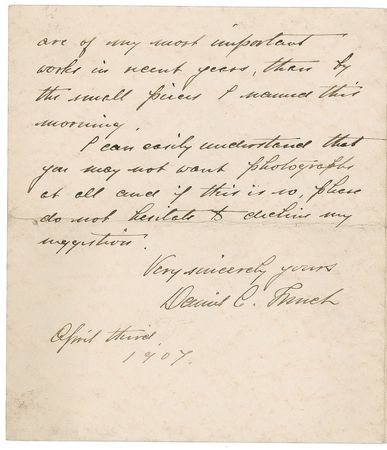 are of my most important
works in recent years, than by
the small pieces I named this
morning.
I can easily understand that
you may not want photographs
at all and if this is so, please
do not hesitate to decline my
suggestion.
Very sincerely yours
Daniel C. French
April third.
1907.